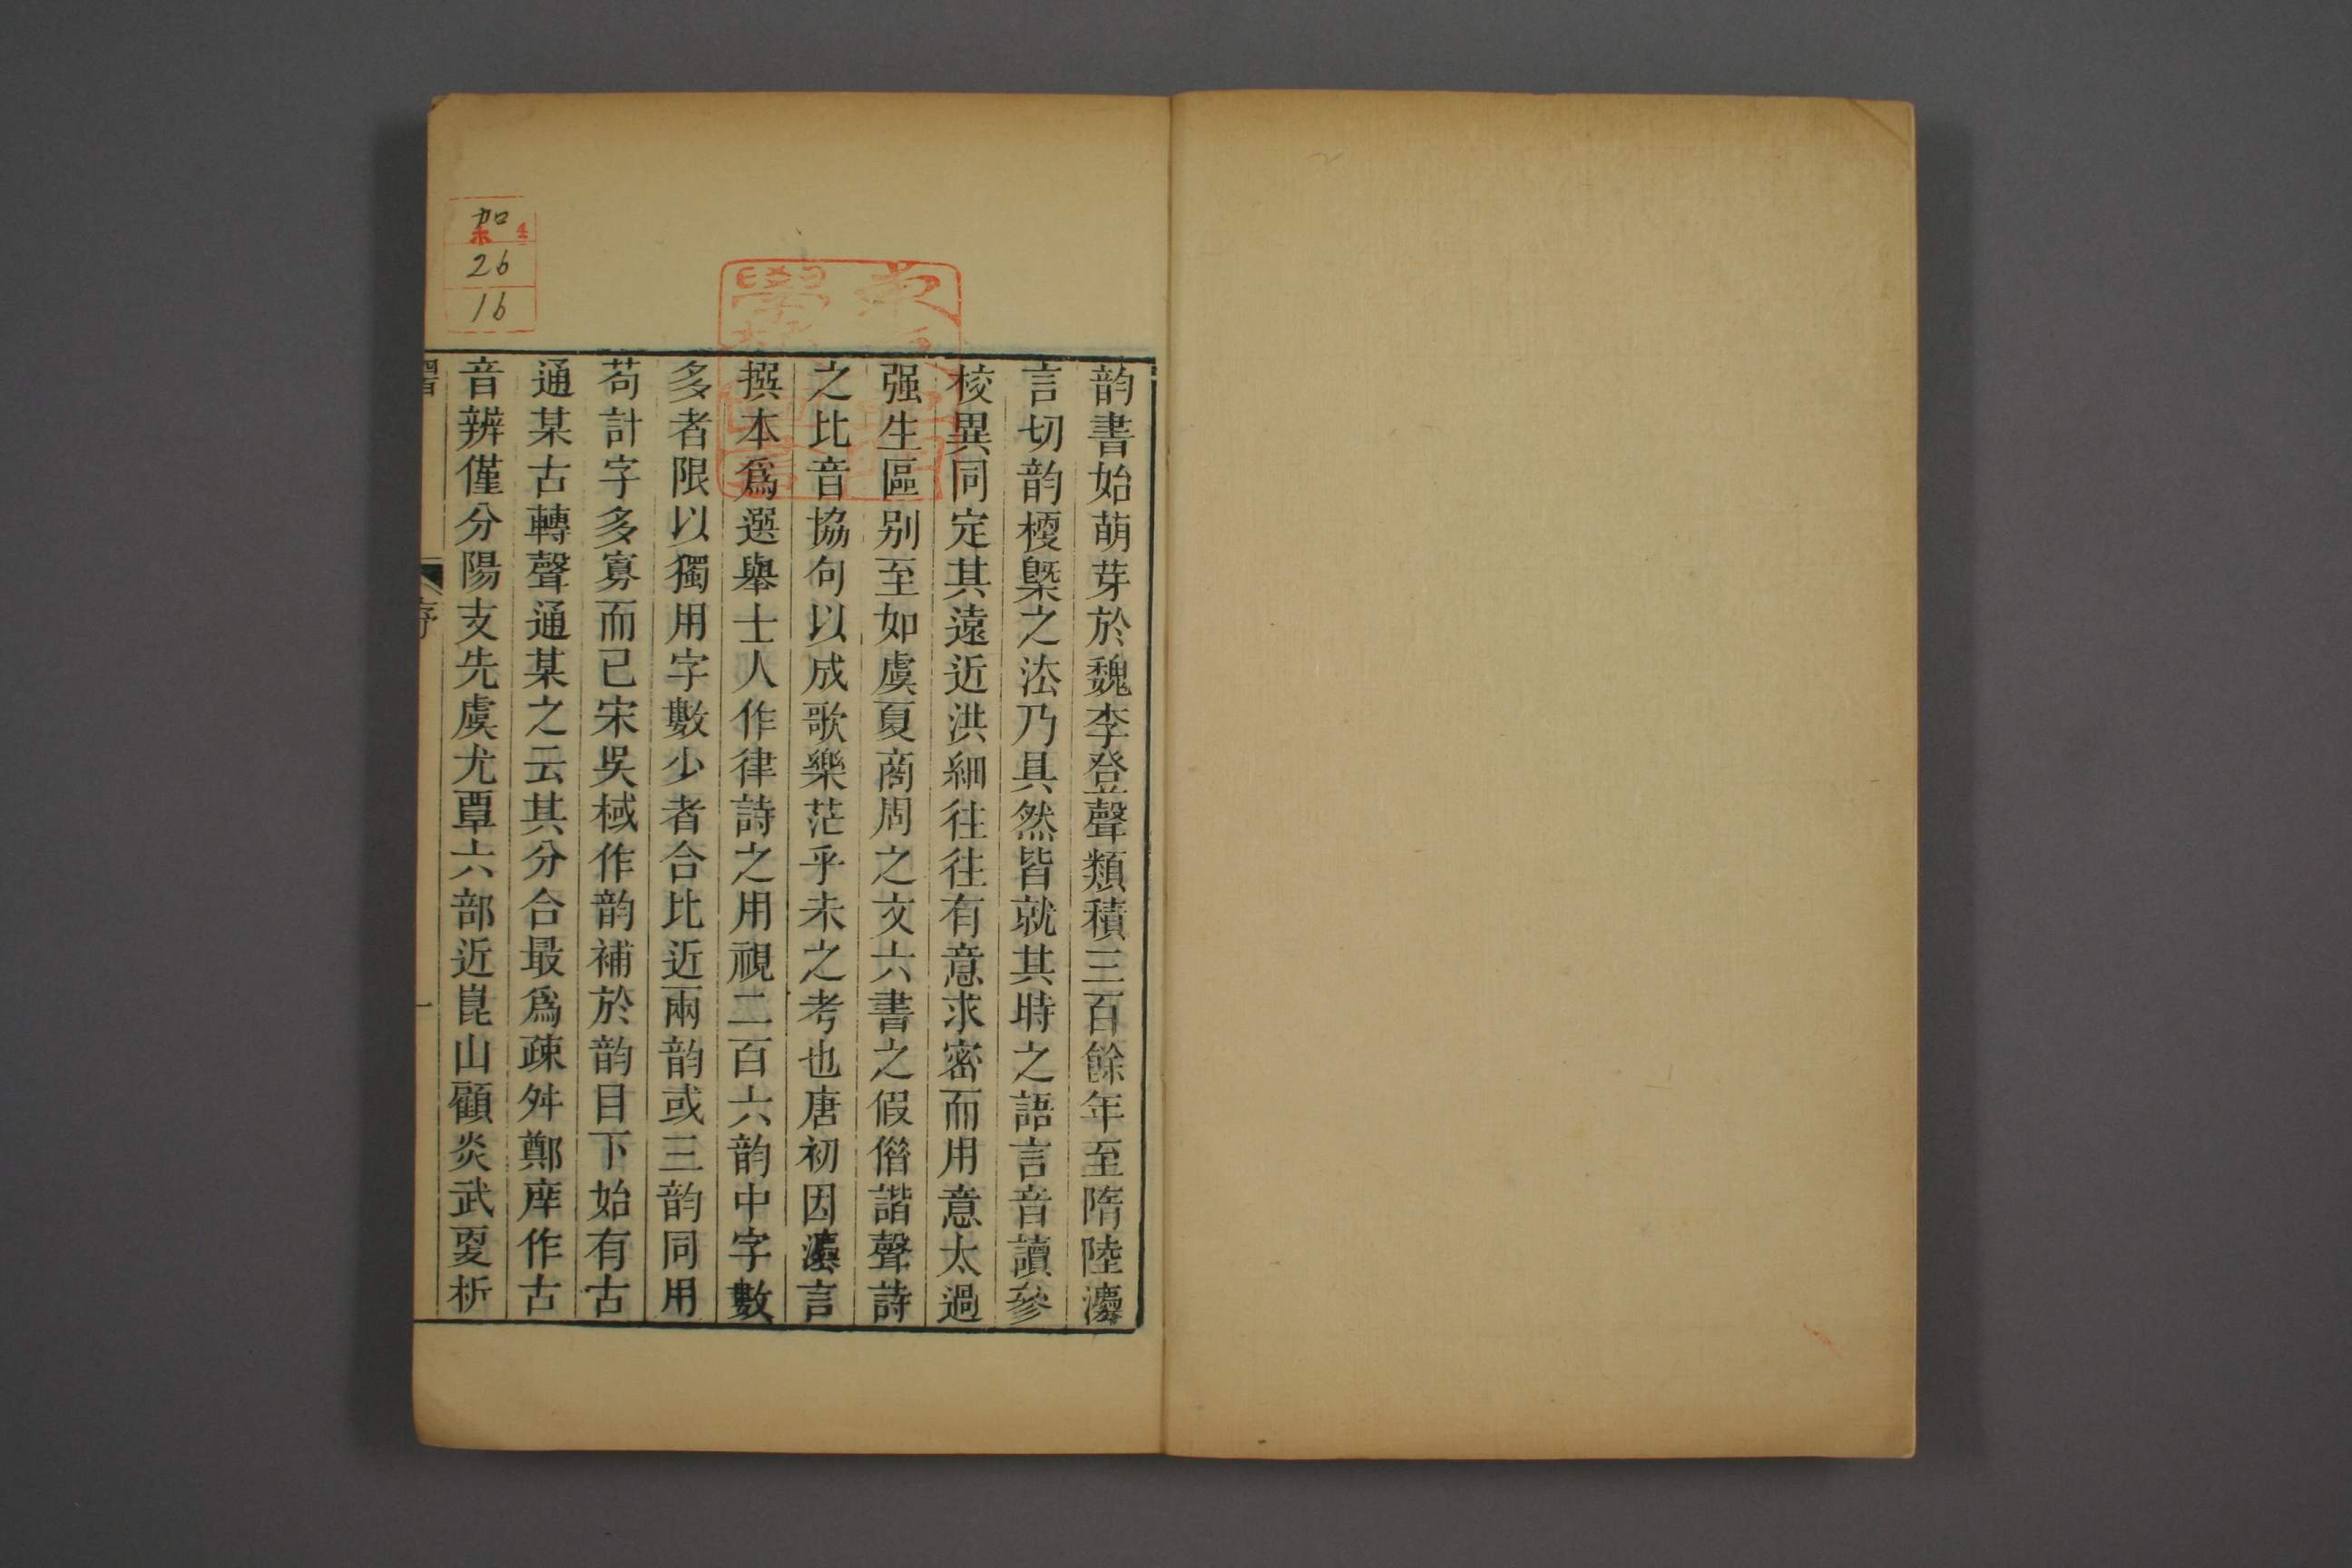 韵書始萌芽於魏李登聲類積三百餘年至隋陸灋
言切韵梗槩之法乃具然皆就其時之語言音讀參
校異同定其遠近洪細往往有意求密而用意太過
强生區别至如虞夏商周之文六書之假借諧聲詩
之比音協句以成歌樂茫乎未之考也唐初因灋言
撰本爲選舉士人作律詩之用視二百六韵中字數
多者限以獨用字數少者合比近兩韵或三韵同用
苟計字多寡而已宋吳棫作韵補於韵目下始有古
通某古轉聲通某之云其分合最爲疎舛鄭庠作古
音辨僅分陽支先虞尤覃六部近崑山顧炎武夏析
序
一
架
26
16